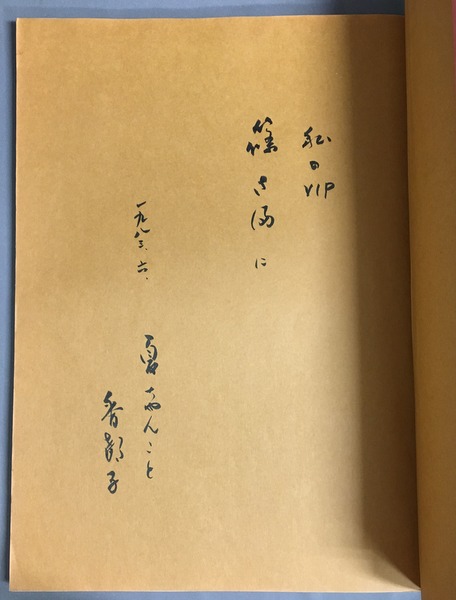 私のVIP
篠さまに
一九八三、六、
夏ちゃんこと
香都子